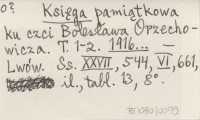 o?
Księga pamiątkowa
ku czci Bolesława Orzecho-
wicza. T. 1-2. 1916... —
Lwów. Ss. XXVII, 544, VI, 661,
il., tabl. 13, 8°.